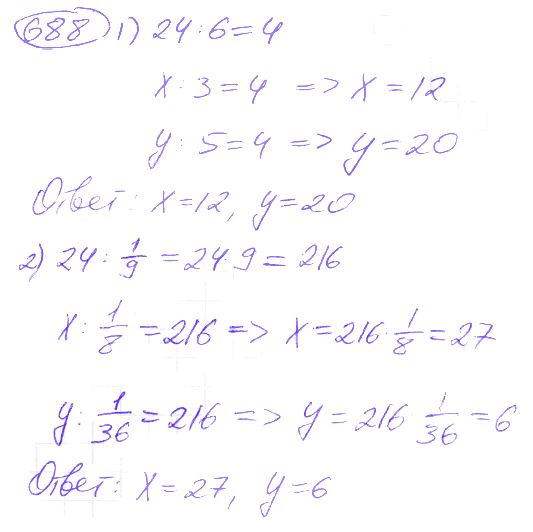 688 1) 24 : 6 = 4
x : 3 = 4 => x = 12
y : 5 = 4 => y = 20
Ответ: x = 12, y = 20
2) 24 : 1/9 = 24 · 9 = 216
x : 1/8 = 216 => x = 216 · 1/8 = 27
y : 1/36 = 216 => y = 216 · 1/36 = 6
Ответ: x = 27, y = 6